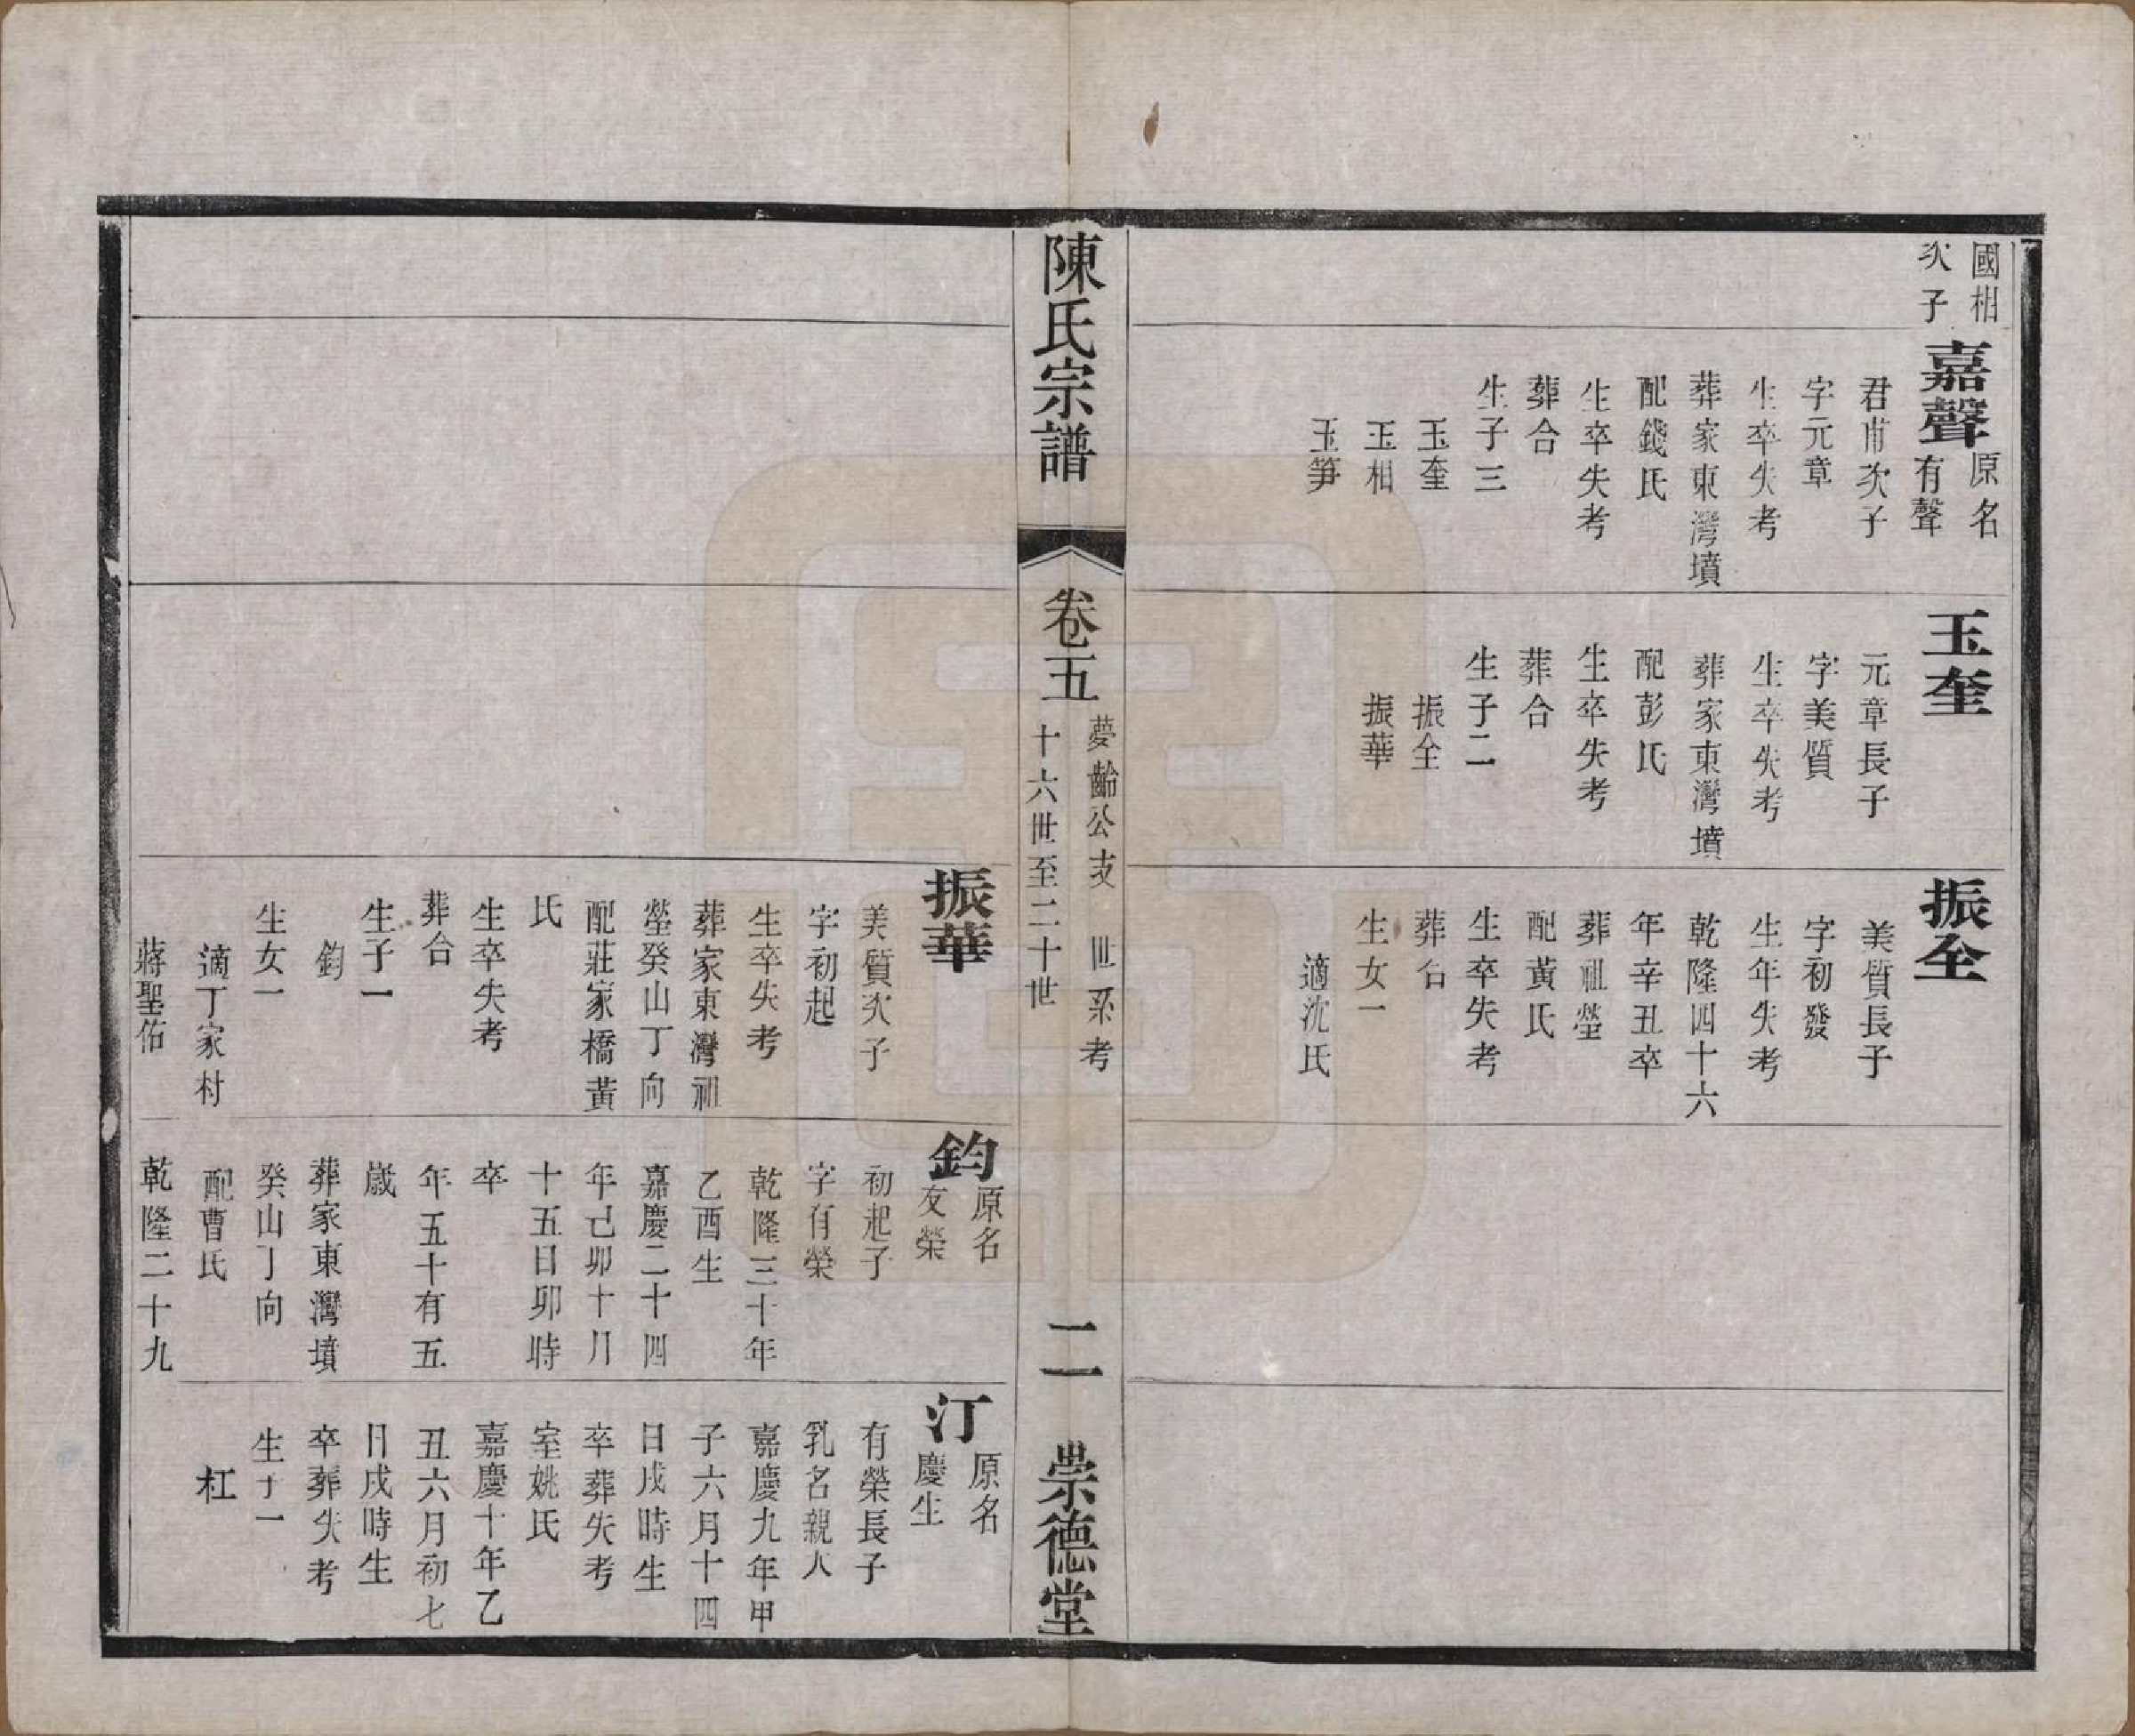 國相
次子
嘉聲
原名
有聲
君甫次子
字元章
生卒失考
葬家東灣墳
配錢氏
生卒失考
葬合
生子三
玉奎
玉相
玉笋
玉奎
元章長子
字美質
生卒失考
葬家東灣墳
配彭氏
生卒失考
葬合
生子二
振全
振華
振全
美質長子
字初發
生年失考
乾隆四十六
年辛丑卒
葬祖塋
配黃氏
生卒失考
葬合
生女一
適沈氏
陳氏宗譜
卷五
夢齡公支 世系考
十六世至二十世
二
崇德堂
振華
美質次子
字初起
生卒失考
葬家東灣祖
塋癸山丁向
配莊家橋黃
氏
生卒失考
葬合
生子一
鈞
生女一
適丁家村
蔣聖佑
鈞
原名
友榮
初起子
字有榮
乾隆三十年
乙酉生
嘉慶二十四
年己卯十月
十五日卯時
卒
年五十有五
歲
葬家東灣墳
癸山丁向
配曹氏
乾隆二十九
汀
原名
慶生
有榮長子
乳名親大
嘉慶九年甲
子六月十四
日戌時生
卒葬失考
室姚氏
嘉慶十年乙
丑六月初七
日戌時生
卒葬失考
生子一
杠